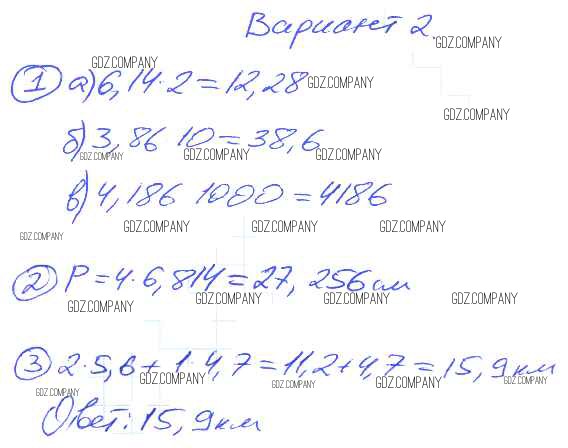 Вариант 2
GDZ.COMPANY
GDZ.COMPANY
① а) 6,14·2=12,28 GDZ.COMPANY
GDZ.COMPANY
б) 3,86 10=38,6
GDZ.COMPANY GDZ.COMPANY GDZ.COMPANY
в) 4,186 1000=4186
GDZ.COMPANY GDZ.COMPANY GDZ.COMPANY
GDZ.COMPANY
② P=4·6,814=27,256см
GDZ.COMPANY GDZ.COMPANY GDZ.COMPANY GDZ.COMPANY
③ 2·5,6+1·4,7=11,2+4,7=15,9км
GDZ.COMPANY GDZ.COMPANY GDZ.COMPANY GDZ.COMPANY
GDZ.COMPANY
Ответ: 15,9км